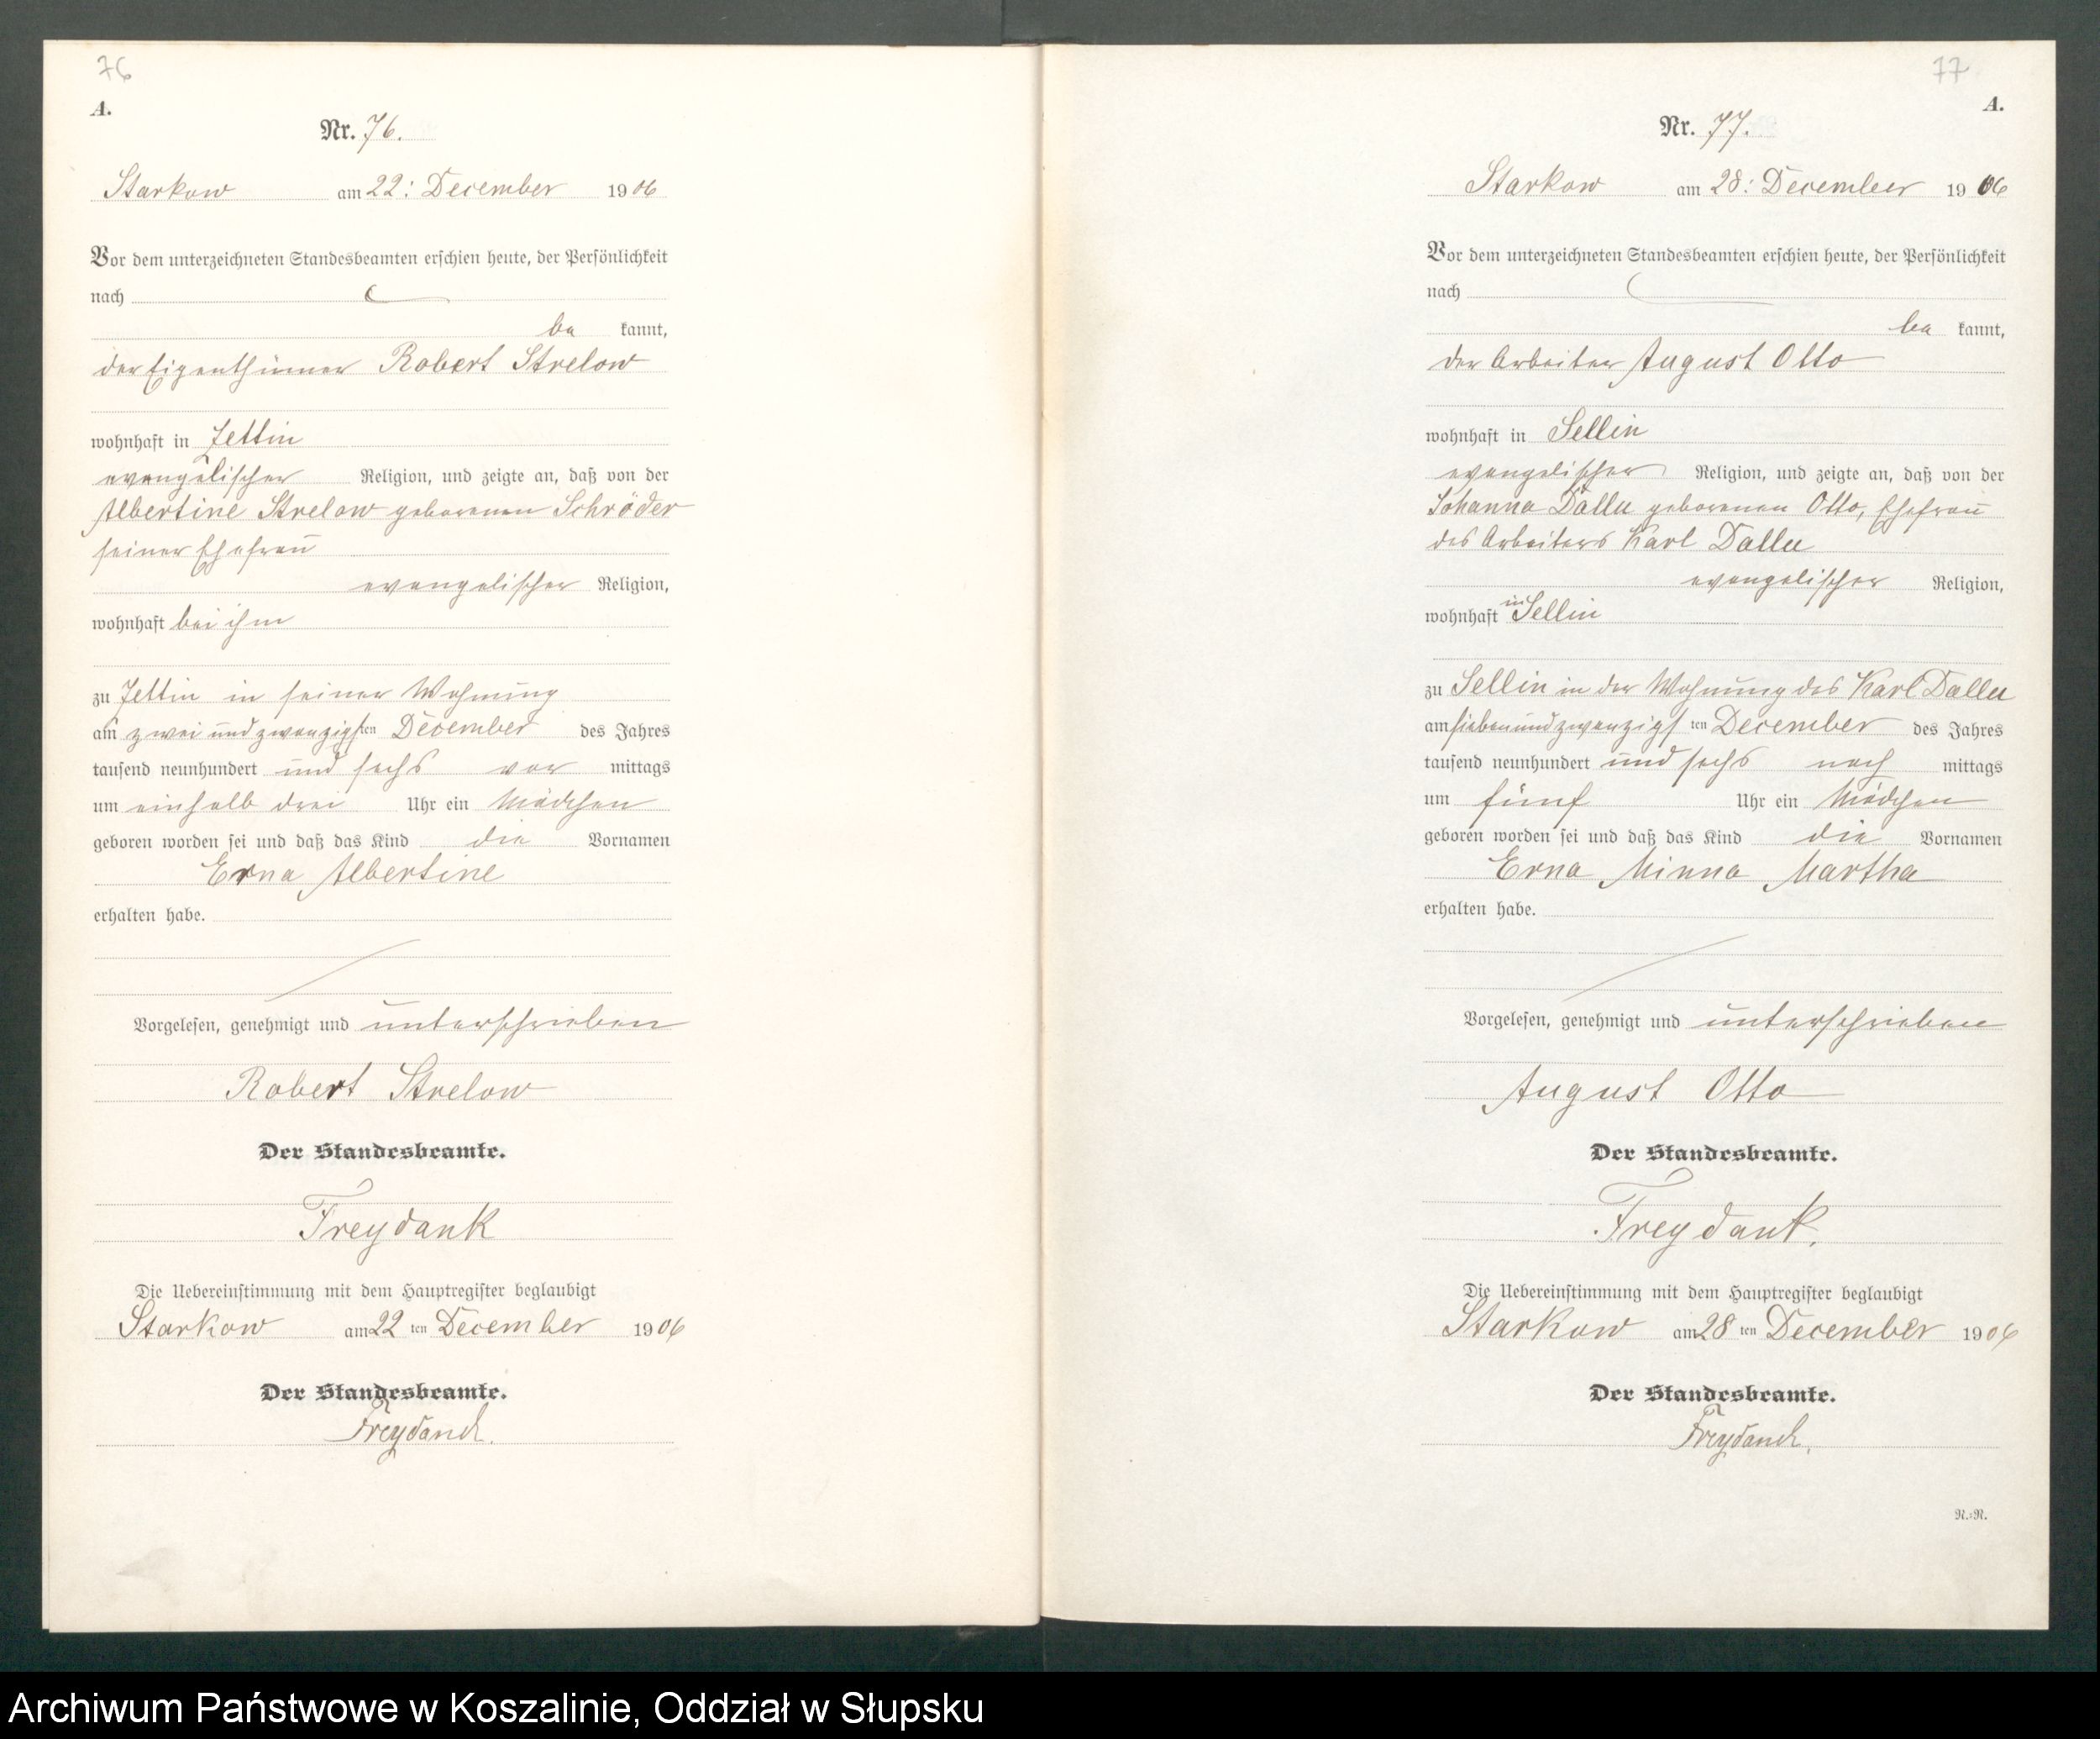 76
A.
Nr. 76.
Starkow am 22: December 1906
Vor dem unterzeichneten Standesbeamten erschien heute, der Persönlichkeit
nach
be kannt,
der Eigenthümer Robert Strelow
wohnhaft in Zettin
evangelischer Religion, und zeigte an, daß von der
Albertine Strelow geborenen Schröder
seiner Ehefrau
evangelischer Religion,
wohnhaft bei ihm
zu Zettin in seiner Wohnung
am zwei und zwanzigsten December des Jahres
tausend neunhundert und sechs vor mittags
um einhalb drei Uhr ein Mädchen
geboren worden sei und daß das Kind die Vornamen
Erna Albertine
erhalten habe.
Vorgelesen, genehmigt und unterschrieben
Robert Strelow
Der Standesbeamte.
Freydank
Die Uebereinstimmung mit dem Hauptregister beglaubigt
Starkow am 22 ten December 1906
Der Standesbeamte.
Freydanck.
77
A.
Nr. 77.
Starkow am 28: December 1906
Vor dem unterzeichneten Standesbeamten erschien heute, der Persönlichkeit
nach
be kannt,
der Arbeiter August Otto
wohnhaft in Sellin
evangelischer Religion, und zeigte an, daß von der
Johanna Dallu geborenen Otto, Ehefrau
des Arbeiters Karl Dallu
evangelischer Religion,
wohnhaft in Sellin
zu Sellin in der Wohnung des Karl Dallu
am siebenundzwanzigs ten December des Jahres
tausend neunhundert und sechs nach mittags
um fünf Uhr ein Mädchen
geboren worden sei und daß das Kind die Vornamen
Erna Minna Martha
erhalten habe.
Vorgelesen, genehmigt und unterschrieben
August Otto
Der Standesbeamte.
Freydank.
Die Uebereinstimmung mit dem Hauptregister beglaubigt
Starkow am 28 ten December 1906
Der Standesbeamte.
Freydanck.
R.=R.
Archiwum Państwowe w Koszalinie, Oddział w Słupsku